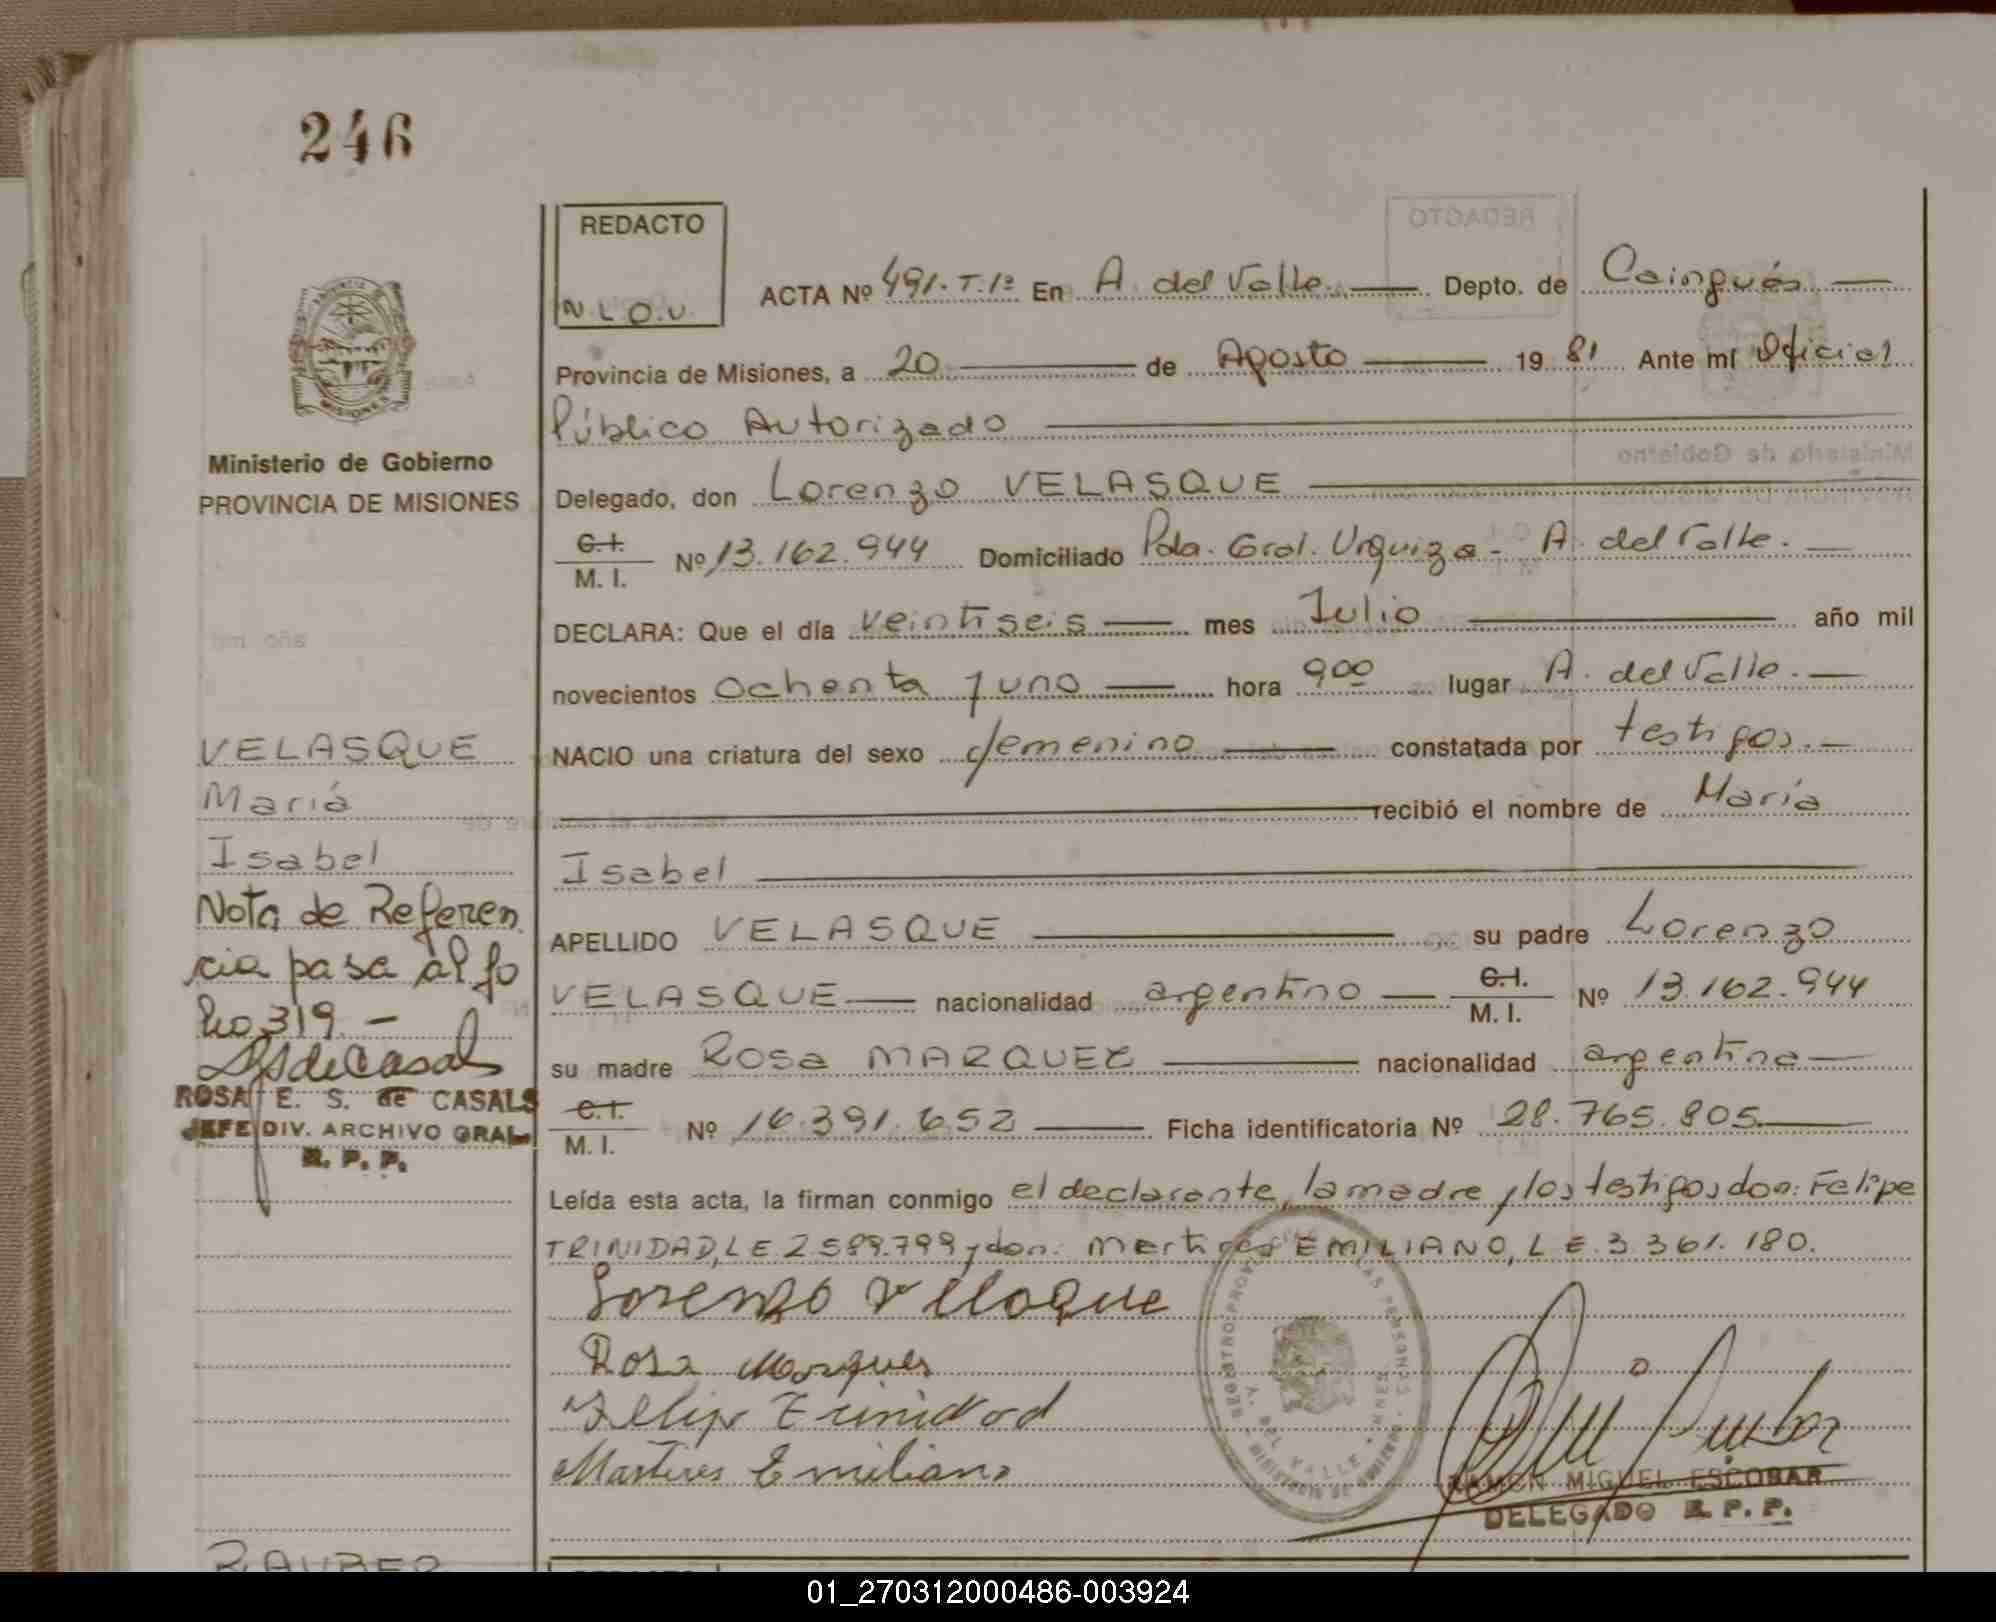 246
REDACTO
N.L.O.V.
ACTA Nº 491.T.1º En A. del Valle. Depto. de Cainguás
Provincia de Misiones, a 20 de Agosto 19 81 Ante mí Oficial
Público Autorizado
Ministerio de Gobierno
PROVINCIA DE MISIONES
Delegado, don Lorenzo VELASQUE
C.I.
M. I.
Nº 13.162.944 Domiciliado Pda. Gral. Urquiza - A. del Valle.
DECLARA: Que el día veintiseis mes Julio año mil
novecientos ochenta y uno hora 9 00 lugar A. del Valle.
VELASQUE
María
Isabel
NACIO una criatura del sexo femenino constatada por testigos.
recibió el nombre de María
Isabel
Nota de Referen
cia pasa al fo
lio 319. -
APELLIDO VELASQUE su padre Lorenzo
VELASQUE nacionalidad argentino C.I. M. I. Nº 13.162.944
ROSA E. S. de CASALS
JEFE DIV. ARCHIVO GRAL
R. P. P.
su madre Rosa MARQUEZ nacionalidad argentina
C.I.
M. I.
Nº 16.391.652 Ficha identificatoria Nº 28.765.805
Leída esta acta, la firman conmigo el declarante, la madre y los testigos don: Felipe
TRINIDAD, L E. 2.589.799 y don: Martires EMILIANO, L E. 3 361. 180.
Rosa Marques
Felip Trinidad
Martires Emiliano
RAMON MIGUEL ESCOBAR
DELEGADO R. P. P.
RAUBER
01_270312000486-003924